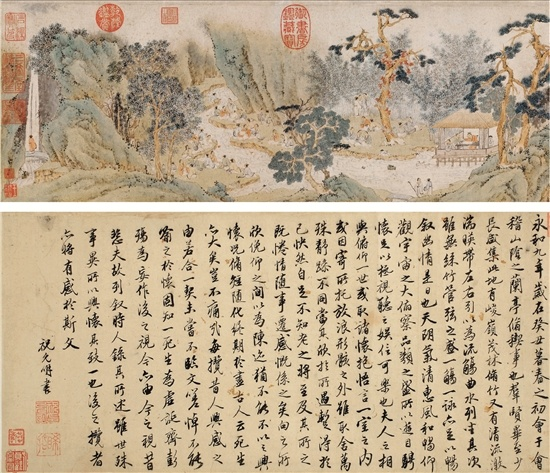 永和九年歲在癸丑暮春之初會于會
稽山陰之蘭亭脩稧事也羣賢畢至少
長咸集此地有峻嶺茂林脩竹又有清流激
湍暎帶左右引以為流觴曲水列坐其次
雖無絲竹管弦之盛一觴一詠亦足以暢
敘幽情是日也天朗氣清惠風和暢仰
觀宇宙之大俯察品類之盛所以遊目騁
懷足以極視聽之娛信可樂也夫人之相
與俯仰一世或取諸懷抱悟言一室之內
或因寄所託放浪形骸之外雖取舍萬
殊靜躁不同當其欣於所遇蹔得於
己怏然自足不知老之將至及其所之
既惓情隨事遷感慨係之矣向之所
欣俛仰之間以為陳迹猶不能不以之興
懷況脩短隨化終期於盡古人云死生
亦大矣豈不痛哉每攬昔人興感之
由若合一契未嘗不臨文嗟悼不能
喻之於懷固知一死生為虛誕齊彭
殤為妄作後之視今亦由今之視昔
悲夫故列敘時人錄其所述雖世殊
事異所以興懷其致一也後之攬者
亦將有感於斯文
祝允明書